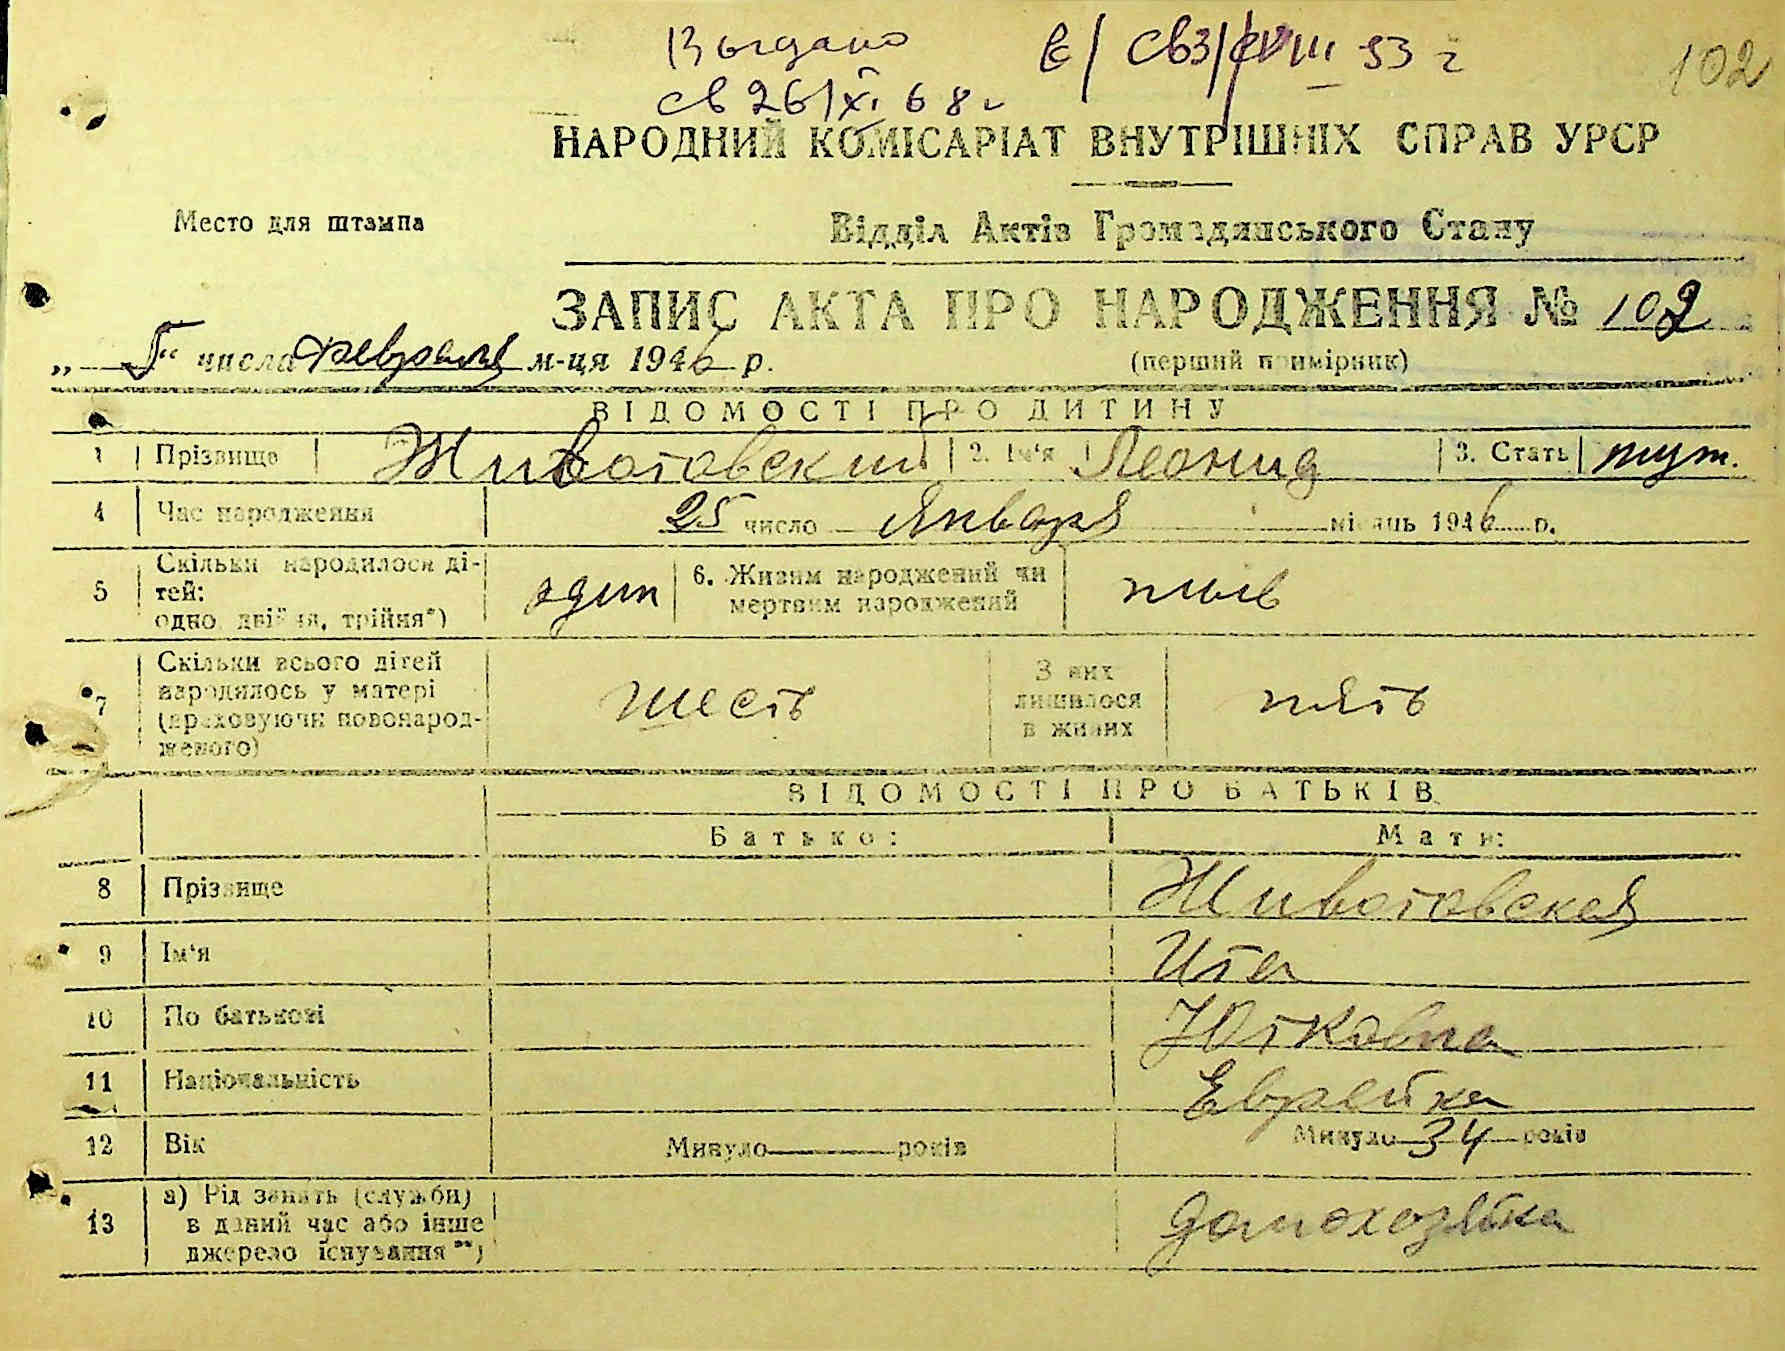 Выдано
св 26/XI 68 г
102
НАРОДНИЙ КОМІСАРІАТ ВНУТРІШНІХ СПРАВ УРСР
Место для штампа
Відділ Актів Громадянського Стану
ЗАПИС АКТА ПРО НАРОДЖЕННЯ № 102
„ 5 “ числа февраля м-ця 1946 р.
(перший примірник)
ВІДОМОСТІ ПРО ДИТИНУ
1 Прізвище Животовский 2. Ім'я Леонид 3. Стать муж.
4 Час народження 25 число Января місяць 1946 р.
5 Скільки народилося ді-
тей:
одно, двійня, трійня*) один
6. Живим народжений чи
мертвим народжений жив
7 Скільки всього дітей
народилось у матері
(враховуючи новонарод-
женого) шесть
З них
лишилося
в живих пять
ВІДОМОСТІ ПРО БАТЬКІВ
Батько: Мати:
8 Прізвище Животовская
9 Ім'я Ита
10 По батькові Ютковна
11 Національність Еврейка
12 Вік Минуло років Минуло 34 років
13 а) Рід занять (служби)
в даний час або інше
джерело існування**) домохозяйка